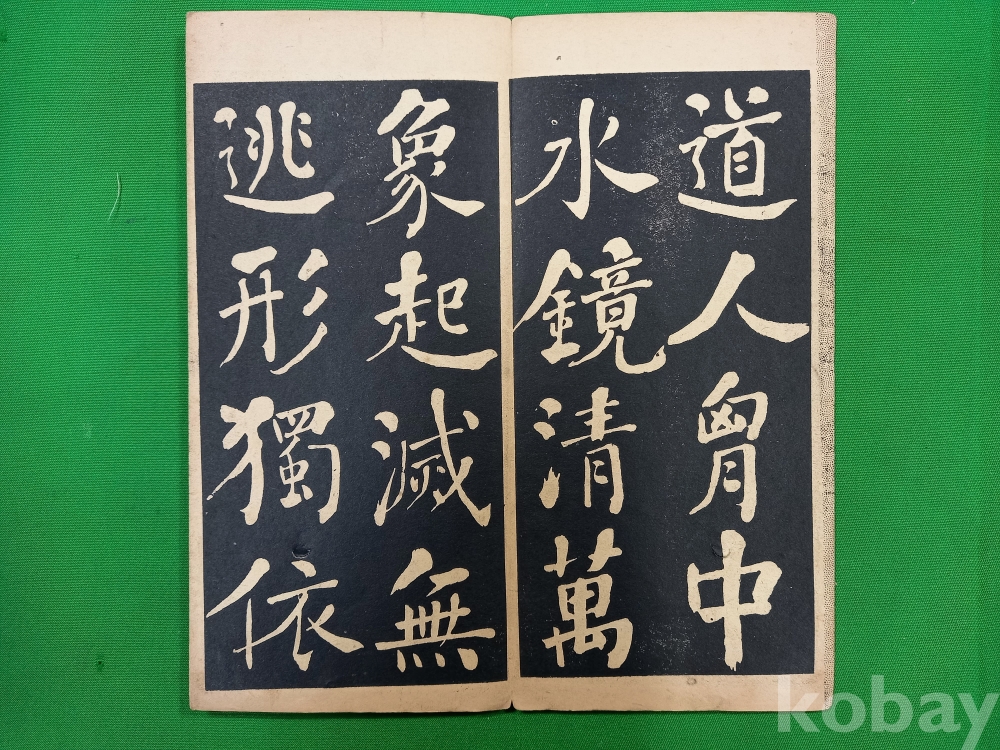 道人胷中
水鏡清萬
象起滅無
逃形獨依
kobay